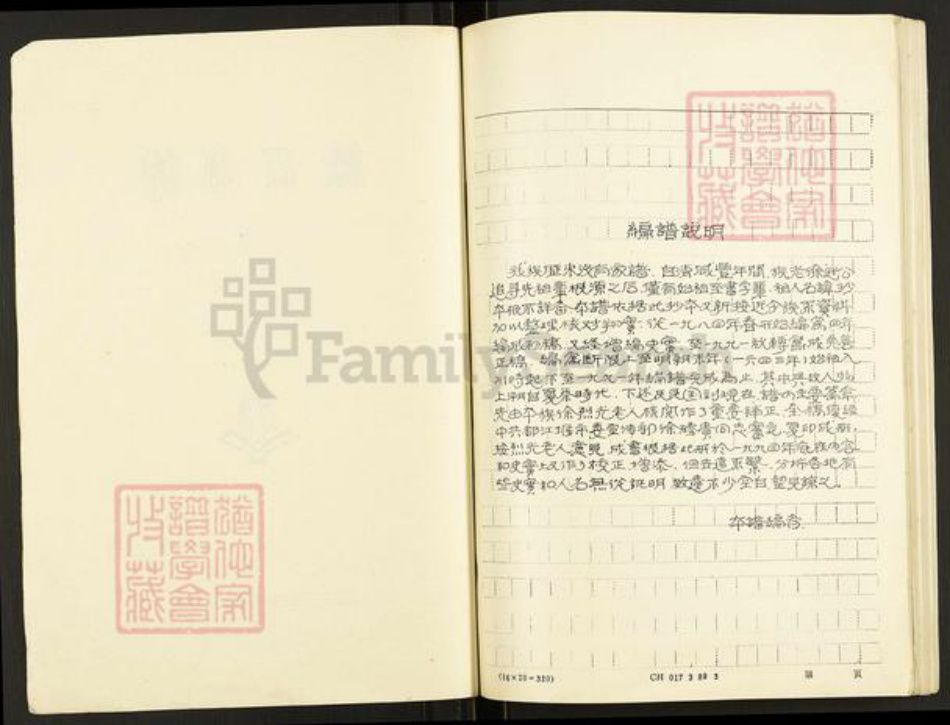 編譜說明
我族歷來沒有家譜．自清咸豐年間，族老徐
追尋先祖根源之后，僅有始祖至書字輩，祖人名諱抄
本很不詳音．本譜依据此抄本又新接近今族系資料
加以整理核对夠實：從一九八四年春开始編寫
編成初稿，又經增編史實，至一九九一秋轉寫成
正稿．編寫斷限上至明朝末年(一六四三年)始祖入
川時起下至一九九一年編譜完成為止．其中與故人物
上朔自夏秦時代．下述及民国到現在．譜的主要
先由本族徐烈光老人核閱作了重要補正．全稿復經
中共都江堰市委宣傳部徐騰貴同志審定．复印成冊．
按烈光老人意見．成書根据此冊於一九九四年底在內容
和史實上又作了校正增添．但去遠系繁．分坼各地有
些史實和人名無從証明．致遺不少空白望見諒之。
本譜編者
(16×20=320) CH 017 3 89 3 第 頁
猶他家譜學會收藏
猶他家譜學會收藏
FamilySearch